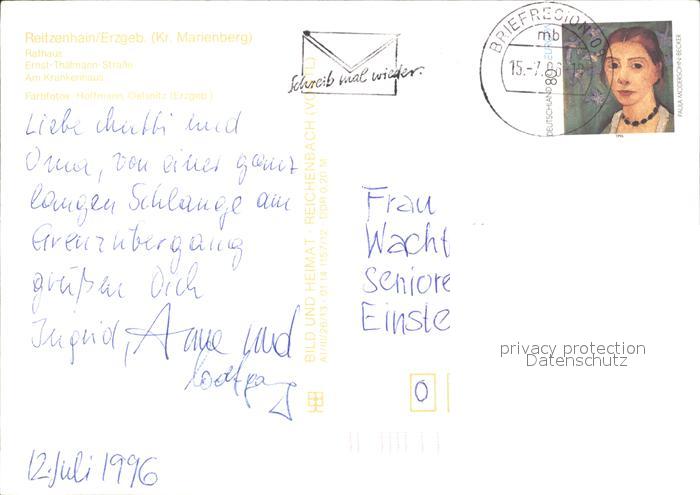 Reitzenhain/Erzgeb. (Kr. Marienberg)
Rathaus
Ernst-Thälmann-Straße
Am Krankenhaus
Farbfotos: Hoffmann, Oelsnitz (Erzgeb.)
Schreib mal wieder.
BRIEFREGION 0
mb
15.-7.96-
DEUTSCHLAND
80
EUROPA
PAULA MODERSOHN-BECKER
1996
Liebe Mutti und
Oma, von einer ganz
langen Schlange am
Grenzübergang
grüßen Dich
Ingrid, Anne und
Wolfgang
12. Juli 1996
BILD UND HEIMAT · REICHENBACH (VOGTL)
DDR 0,20 M
Frau
Wacht
Seniore
Einste
0
privacy protection
Datenschutz